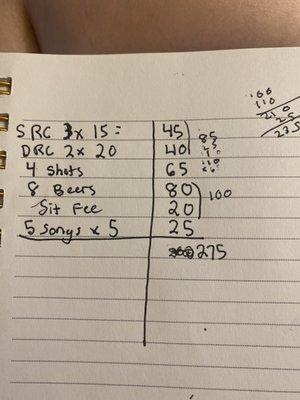 SRC 3x 15= 45
DRC 2x 20 40
4 Shots 65
8 Beers 80
Sit Fee 20
5 Songs x 5 25
275
85
110
100
160
110